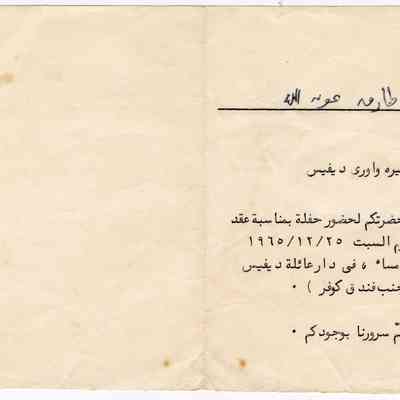 طارق عوض الله
يره واورى ديفيس
حضرتكم لحضور حفلة بمناسبة عقد
م السبت ١٩٦٥/١٢/٢٥
ساءً فى دار عائلة ديفيس
جنب فندق كوفر ) ٠
مّ سرورنا بوجودكم ٠